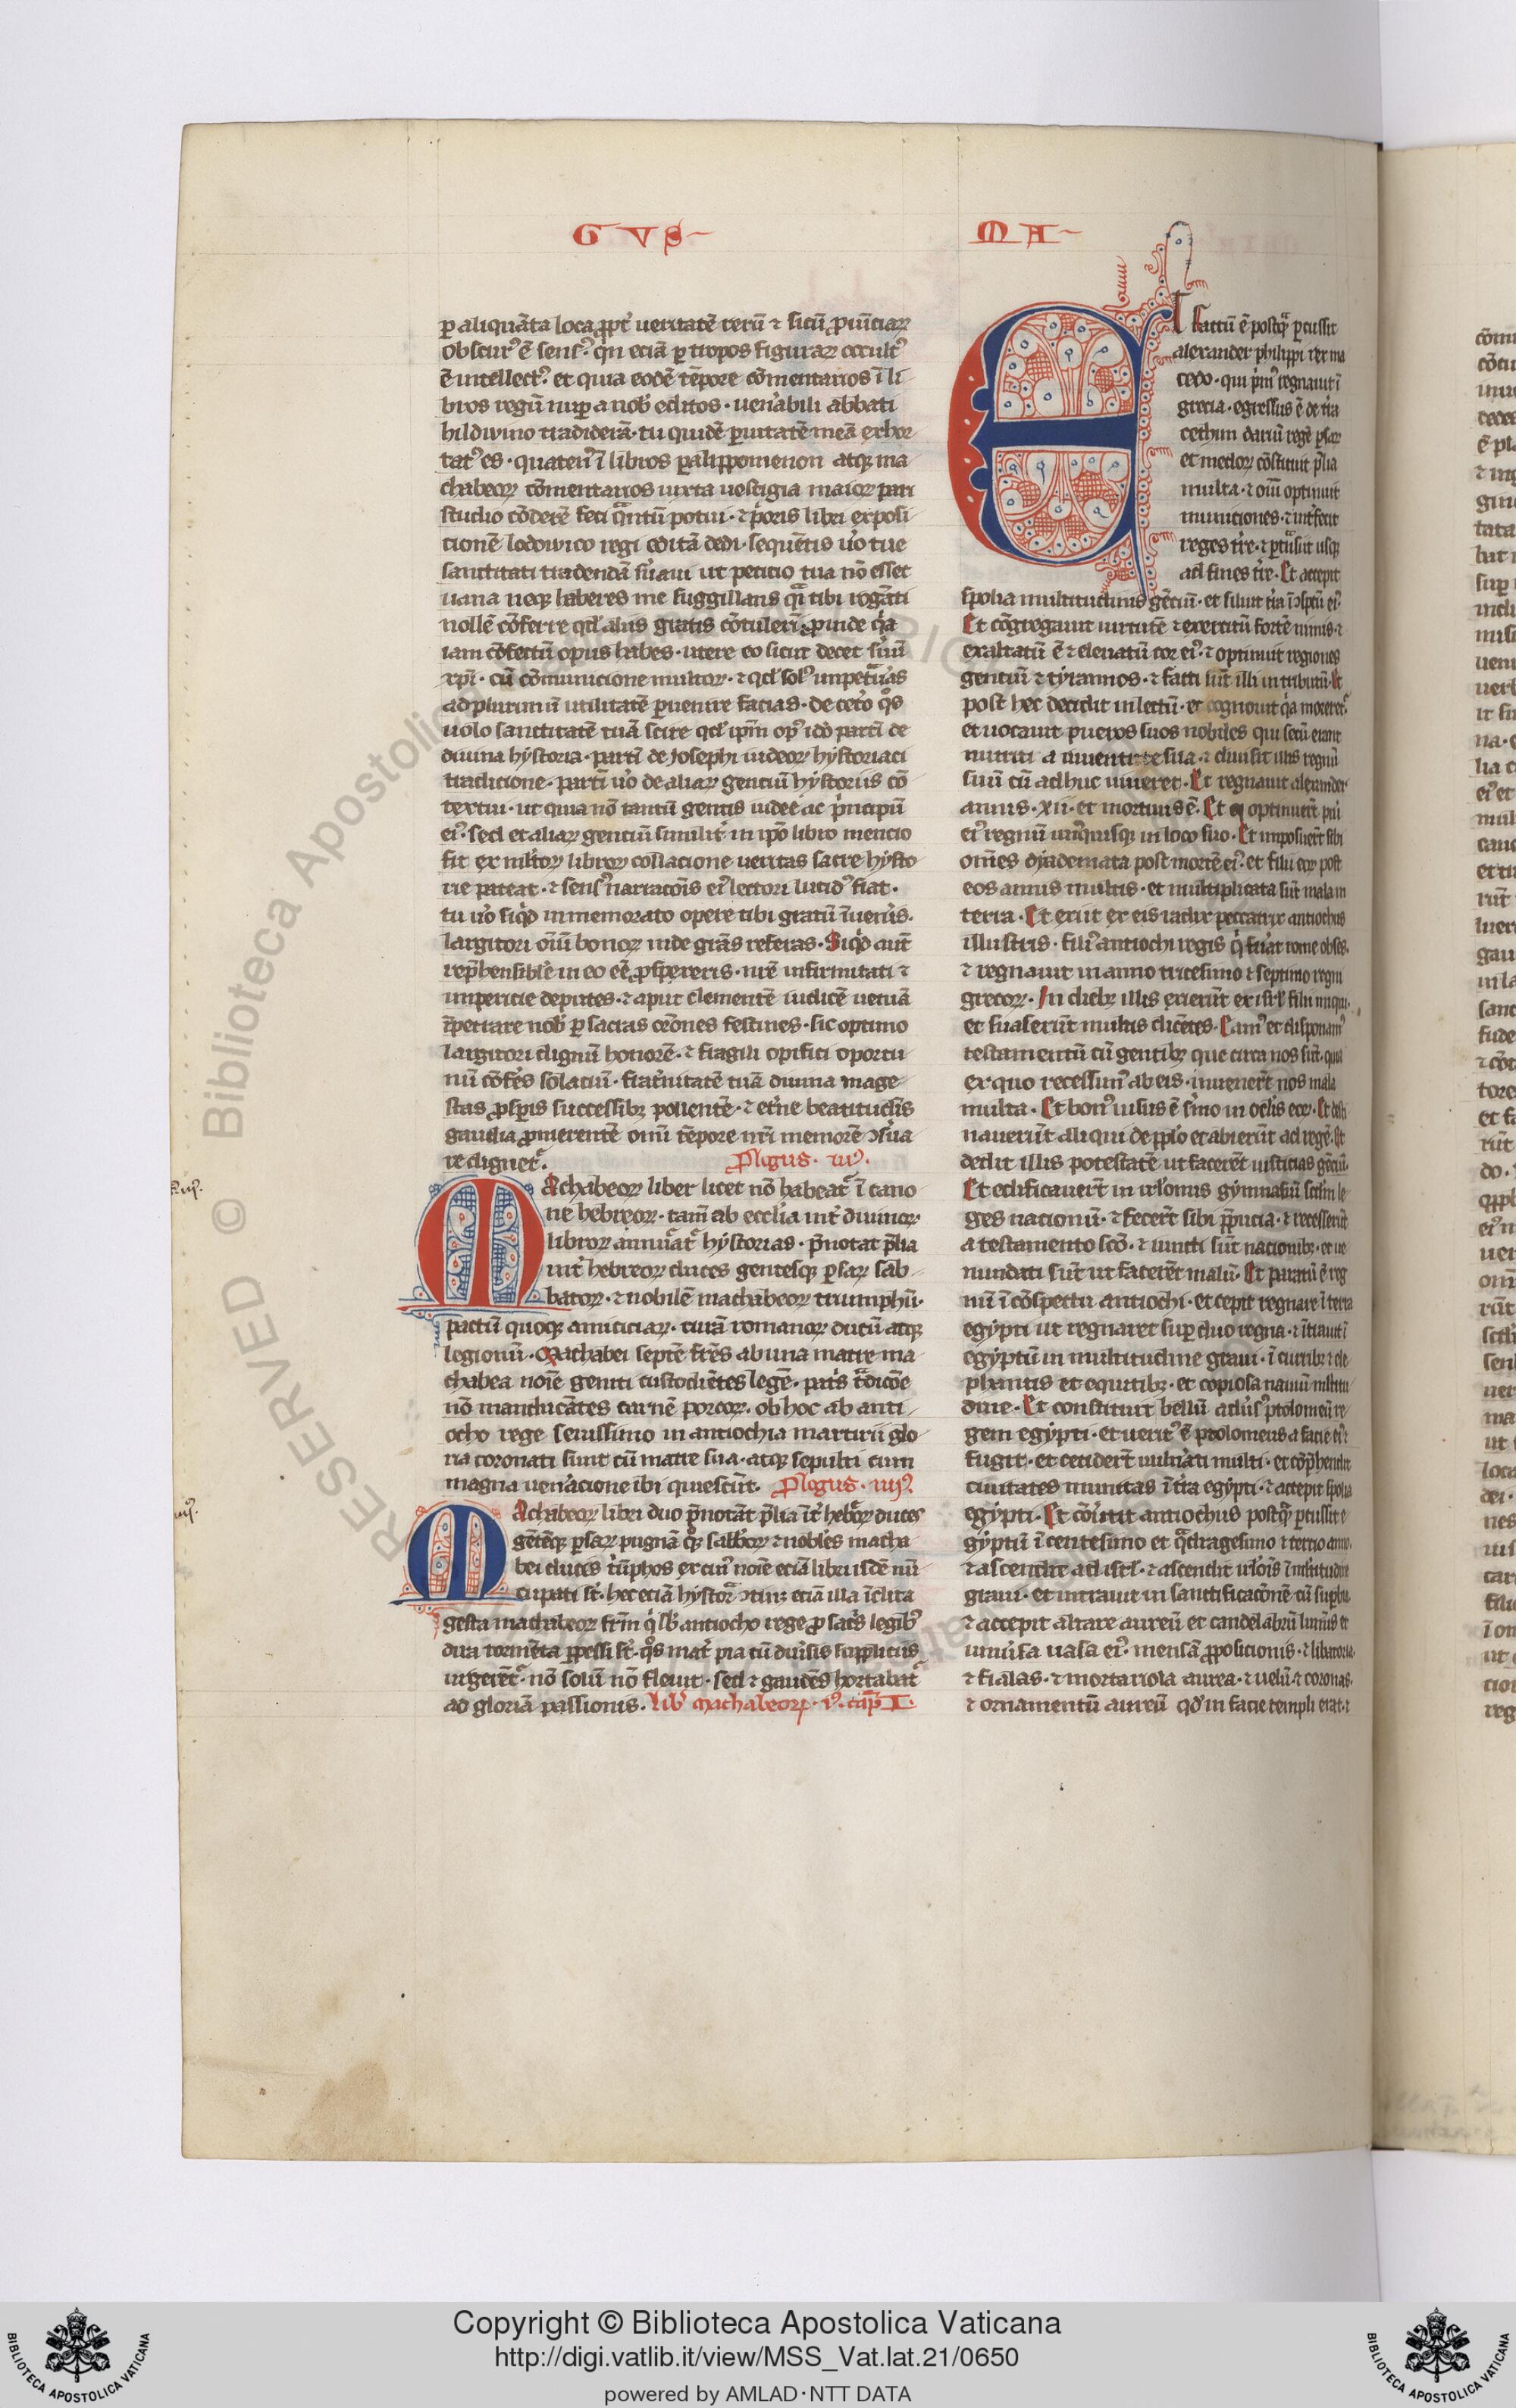 G V S
ꝑ aliquãta loca ꝓpt᷑ ueritatẽ rerũ ⁊ sitũ ꝓuĩciaꝝ
obscurꝰ ẽ sensꝰ· qñ eciã ꝑ tropos figuraꝝ occultꝰ
ẽ intellectꝰ· et quia eodẽ tẽpore cõmentarios ĩ li
bros regũ nuꝑ a nob̾ editos· uen̾abili abbati
hildwino tradiderã· tu quidẽ ꝑuitatẽ meã exhor
tatꝰ es· quatenꝰ ĩ libros ꝑalippomenon atqꝫ ma
chabeoꝝ cõmentarios iuxta uestigia maioꝝ pari
studio cõderẽ feci q̃ntũ potui· ⁊ p̾oris libri exposi
cionẽ lodowico regi editã dedi· sequẽtis u̾o tue
sanctitati tradendã s̾uaui ut peticio tua nõ esset
uana neqꝫ haberes me suggillans q̃ tibi rogãti
nollẽ cõferre qd̾ aliis gratis cõtulerĩ ꝓinde q̾a
iam cõfectũ opus habes· utere eo sicut decet s̾uũ
xp̃i· cũ cõmunicione multoꝝ· ⁊ qd̾ solꝰ impet̃uas
ad plurimũ utilitatẽ ꝑuenire facias· de cet̾o q̊s
uolo sanctitatẽ tuã scire qd̾ ip̃m opꝰ ido partĩ de
diuina hystoria· partĩ de Josephi iudeoꝝ hystoriaci
tradicione· partĩ u̾o de aliaꝝ genciũ hystoriis cõ
textui· ut quia nõ tantũ gentis iudee ac p̾ncipũ
eiꝰ· sed et aliaꝝ genciũ similit᷑ in ip̃o libro mencio
fit ex ml̾toꝝ libroꝝ collacione ueritas sacre hysto
rie pateat· ⁊ sensꝰ narracõis eiꝰ lectori lucidꝰ fiat·
tu u̾o siq̾d in memorato opere tibi gratũ ĩuen̾is·
largitori oĩũ bonoꝝ inde grãs referas· Siq̾d aut̃
rep̃hensible in eo eẽ ꝓspexeris· nr̃e infirmitati ⁊
impericie deputes· ⁊ aput clementẽ iudicẽ ueniã
ĩpetrare nob̾ ꝑ sacras or̃ones festines· sic optimo
largitori dignũ honorẽ· ⁊ fragili opifici oportu
nũ cõfe̾s solaciũ· frat̾nitatẽ tuã diuina mage
stas ꝓsꝑis successibꝫ pollentẽ· ⁊ et̾ne beatitudĩs
gaudia ꝓmerentẽ omi tẽpore nr̃i memorẽ ꝯs̾ua
re dignet᷑·
Plogus· iiiꝰ·
MAchabeoꝝ liber licet nõ habeat᷑ ĩ cano
ne hebreoꝝ· tam̃ ab ecclia int᷑ diuinoꝝ
libroꝝ annũat᷑ hystorias· p̃notat p̃lia
int᷑ hebreoꝝ duces gentesqꝫ ꝑsaꝝ sab
batoꝝ· ⁊ nobilẽ machabeoꝝ triumphũ·
pactũ quoqꝫ amiciciaꝝ· curã romanoꝝ ducũ atqꝫ
legionũ· Machabei septẽ fr̃es ab una matre ma
chabea noĩe geniti custodiẽtes legẽ· pat̾s t̃dicõe
nõ manducãtes carnẽ porcoꝝ· ob hoc ab anti
ocho rege seuissimo in antiochia martirii glo
ria coronati sunt cũ matre sua· atqꝫ sepulti cum
magna uen̾acione ibi quiescũt· Plogus· iiijꝰ·
MAchabeoꝝ libri duo p̃notãt p̃lia ĩt᷑ heb̾oꝝ duces
gẽtẽqꝫ ꝑsaꝝ pugnã q̊qꝫ sabb̾oꝝ ⁊ nobles macha
bei duces t̾ũphos ex cuiꝰ noĩe eciã libri isdẽ nũ
cupati st̃· hec eciã hystor̃ ꝯtinꝫ eciã illa ĩclita
gesta machabeoꝝ fr̃m q̾ sb̾ antiocho rege ꝓ sac̾s legibꝰ
dira tormẽta ꝑpessi st̃· q̊s mat̾ pia cũ diu̾sis suppliciis
urgerẽt᷑· nõ solũ nõ fleuit· sed ⁊ gaudẽs hortabat᷑
ad gloriã passionis· lib̾ machabeoꝝ· iꝰ· cap̃ I·
M A
ET factũ ẽ postq̃ ꝑcussit
alexander philippi rex ma
cedo· qui p̾mꝰ regnauit ĩ
grecia· egressus ẽ de t̾ra
cethim dariũ regẽ ꝑsaꝝ
et medoꝝ cõstituit p̃lia
multa· ⁊ oĩũ optinuit
municiones· ⁊ int̾fecit
reges t̾re· ⁊ ꝑt̃nsiit usqꝫ
ad fines t̾re· Et accepit
spolia multitudinis gẽciũ· et siluit t̾ra ĩ ꝯspctũ eiꝰ
Et cõgregauit uirtutẽ ⁊ exercitũ fortẽ nimis· ⁊
exaltatũ ẽ ⁊ eleuatũ cor eiꝰ· ⁊ optinuit regiones
gentiũ ⁊ tyrannos· ⁊ facti sũt illi in tributũ· Et
post hec decidit in lectũ· et cognouit q̾a moreret᷑
et uocauit pueros suos nobiles qui secũ erant
nutriti a iuuentute sua· ⁊ diuisit illis regnũ
suũ cũ adhuc uiueret· Et regnauit alexander
annis· xii· et mortuus ẽ· Et optinuert̃ pũi
eiꝰ regnũ unꝰquisqꝫ in loco suo· Et imposuert̃ sibi
om̃es dyademata post mortẽ eiꝰ· et filii eoꝝ post
eos annis multis· et multiplicata sũt mala in
terra· Et exiit ex eis radix peccatrix antiochus
illustris· filiꝰ antiochi regis q̾ fu̾at rome obses·
⁊ regnauit in anno tricesimo ⁊ septimo regni
grecoꝝ· In diebꝫ illis exierũt ex isrl̾ filii iniqui·
et suaserũt multis dicẽtes· Eamꝰ et disponamꝰ
testamentũ cũ gentibꝫ que circa nos sũt· quia
ex quo recessimꝰ ab eis· inuenert̃ nos mala
multa· Et bonꝰ uisus ẽ s̾mo in ocl̾is eoꝝ· Et desti
nauerũt aliqui de ppl̾o et abierũt ad regẽ· Et
dedit illis potestatẽ ut facerẽt iusticias gẽciũ·
Et edificauert̃ in irl̾omis gymnasiũ scd̾m le
ges nacionũ· ⁊ fecert̃ sibi p̃pucia· ⁊ recesserũt
a testamento scõ· ⁊ iuncti sũt nacionibꝫ· et ue
nundati sũt ut facerẽt malũ· Et paratũ ẽ reg
nũ ĩ cõspectu antiochi· et cepit regnare ĩ terra
egypti ut regnaret suꝑ duo regna· ⁊ ĩtrauit ĩ
egyptũ in multitudine graui· ĩ curribꝫ ⁊ ele
phantis et equitibꝫ· et copiosa nauiũ ml̾titu
dine· Et constituit bellũ adu̾sꝰ ptolomeũ re
gem egypti· et ueritꝰ ẽ ptolomeus a facie eiꝰ ⁊
fugit· et cecidert̃ uuln̾ati multi· et cõp̃hendit
ciuitates munitas ĩ t̾ra egypti· ⁊ accepit spolia
egypti· Et cõu̾tit antiochus postq̃ ꝑcussit e
gyptũ ĩ centesimo et q̃dragesimo ⁊ tercio anno·
⁊ ascendit ad isrl̾· ⁊ ascendit irl̾oĩs ĩ ml̾titudine
graui· et intrauit in sanctificacõnẽ cũ suꝑbia
⁊ accepit altare aureũ et candelabrũ luminis et
uniu̾sa uasa eiꝰ· mensã ꝓposicionis· ⁊ libatoria·
⁊ fialas· ⁊ mortariola aurea· ⁊ uelũ ⁊ coronas·
⁊ ornamentũ aureũ qd̾ in facie templi erat· ⁊
RESERVED © Biblioteca Apostolica
Copyright © Biblioteca Apostolica Vaticana
http://digi.vatlib.it/view/MSS_Vat.lat.21/0650
powered by AMLAD·NTT DATA
BIBLIOTECA APOSTOLICA VATICANA
BIBLIOTECA APOSTOLICA VATICANA